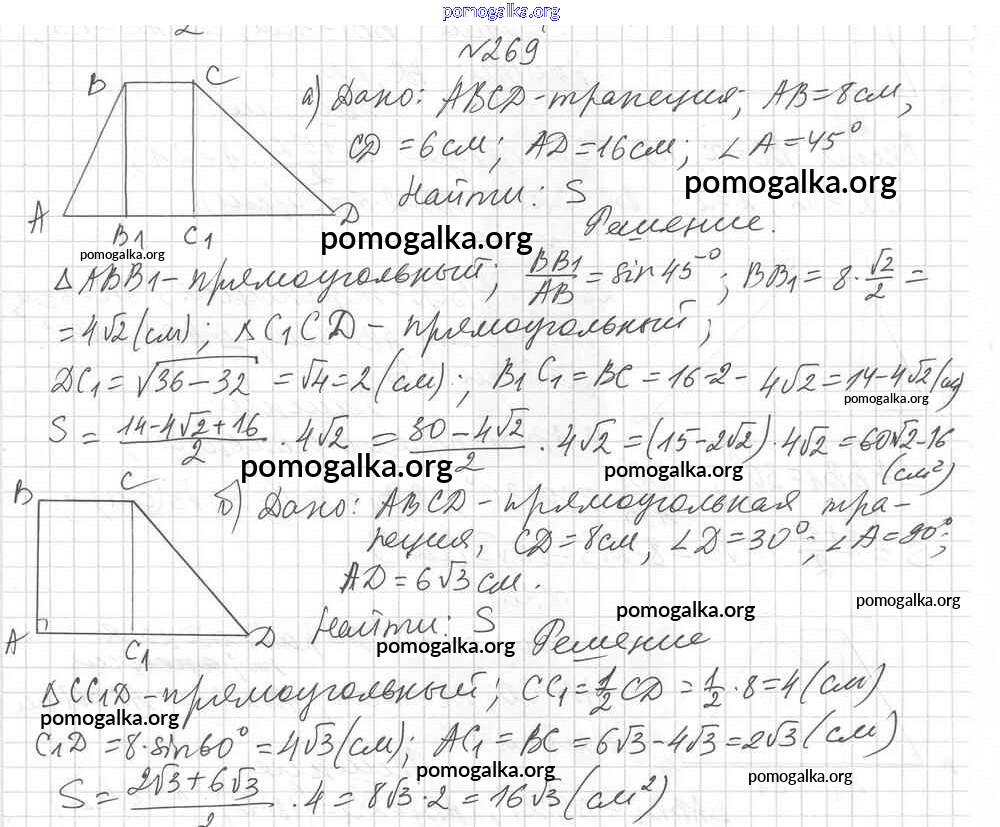 pomogalka.org
2
№269
B C
а) Дано: ABCD-трапеция; AB=8см,
CD=6см; AD=16см; ∠A=45°
pomogalka.org
Найти: S
A B1 C1 D
pomogalka.org
pomogalka.org
Решение.
△ABB1-прямоугольный; BB1/AB=sin45°; BB1=8·√2/2=
=4√2(см); △C1CD-прямоугольный;
DC1=√(36-32)=√4=2(см); B1C1=BC=16-2-4√2=14-4√2(см)
pomogalka.org
S=(14-4√2+16)/2·4√2=(30-4√2)/2·4√2=(15-2√2)·4√2=60√2-16
(см²)
pomogalka.org
pomogalka.org
B C
б) Дано: ABCD-прямоугольная тра-
пеция, CD=8см, ∠D=30°; ∠A=90°;
AD=6√3см.
pomogalka.org
pomogalka.org
Найти: S
A C1 D
pomogalka.org
Решение
△CC1D-прямоугольный; CC1=1/2CD=1/2·8=4(см)
pomogalka.org
C1D=8·sin60°=4√3(см); AC1=BC=6√3-4√3=2√3(см)
pomogalka.org
pomogalka.org
S=(2√3+6√3)/2·4=8√3·2=16√3(см²)